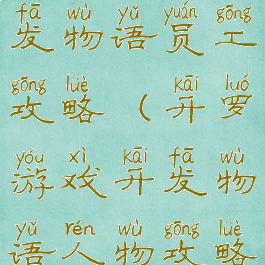 fā wù yǔ yuán gōng
发物语员工
gōng lüè kāi luó
攻略（开罗
yóu xì kāi fā wù
游戏开发物
yǔ rén wù gōng lüè
语人物攻略